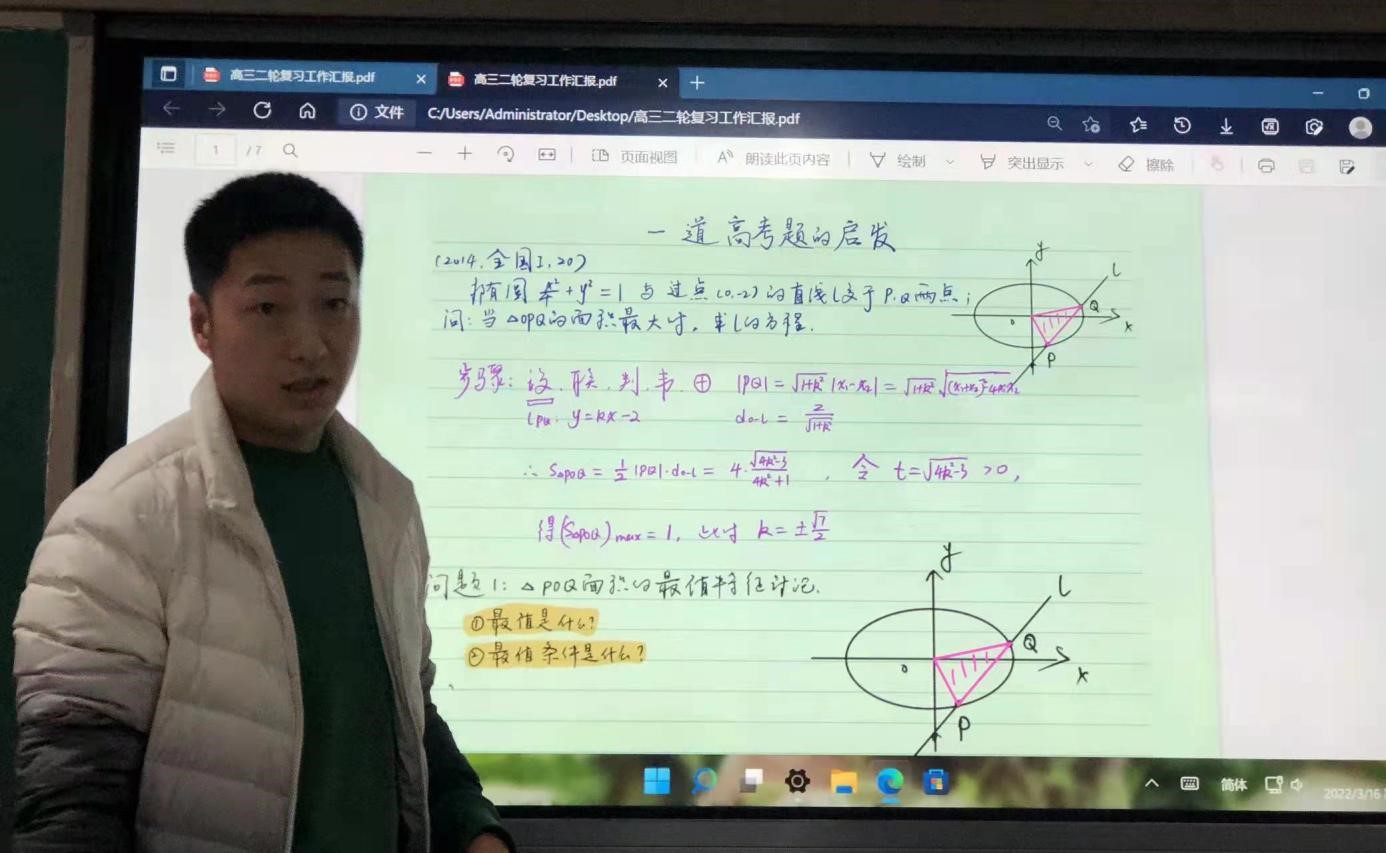 高三二轮复习工作汇报.pdf
高三二轮复习工作汇报.pdf
文件 C:/Users/Administrator/Desktop/高三二轮复习工作汇报.pdf
1 / 7 页面视图 朗读此页内容 绘制 突出显示 擦除
一道高考题的启发
(2014.全国I,20)
椭圆 x²/4 + y² = 1 与过点(0,-2)的直线l交于P.Q两点;
问:当△OPQ的面积最大时,求l的方程.
y
l
Q
o
x
P
步骤:设.联.判.韦 ⊕ |PQ| = √(1+k²) |x₁-x₂| = √(1+k²) √((x₁+x₂)²-4x₁x₂)
lPQ: y=kx-2 do-l = 2/√(1+k²)
∴ S△POQ = 1/2 |PQ|·do-l = 4·√(4k²-3)/(4k²+1) , 令 t=√(4k²-3) >0,
得(S△POQ)max = 1, 此时 k = ±√7/2
问题1:△POQ面积的最值特征讨论.
①最值是什么?
②最值条件是什么?
y
l
Q
o
x
P
简体
2022/3/16